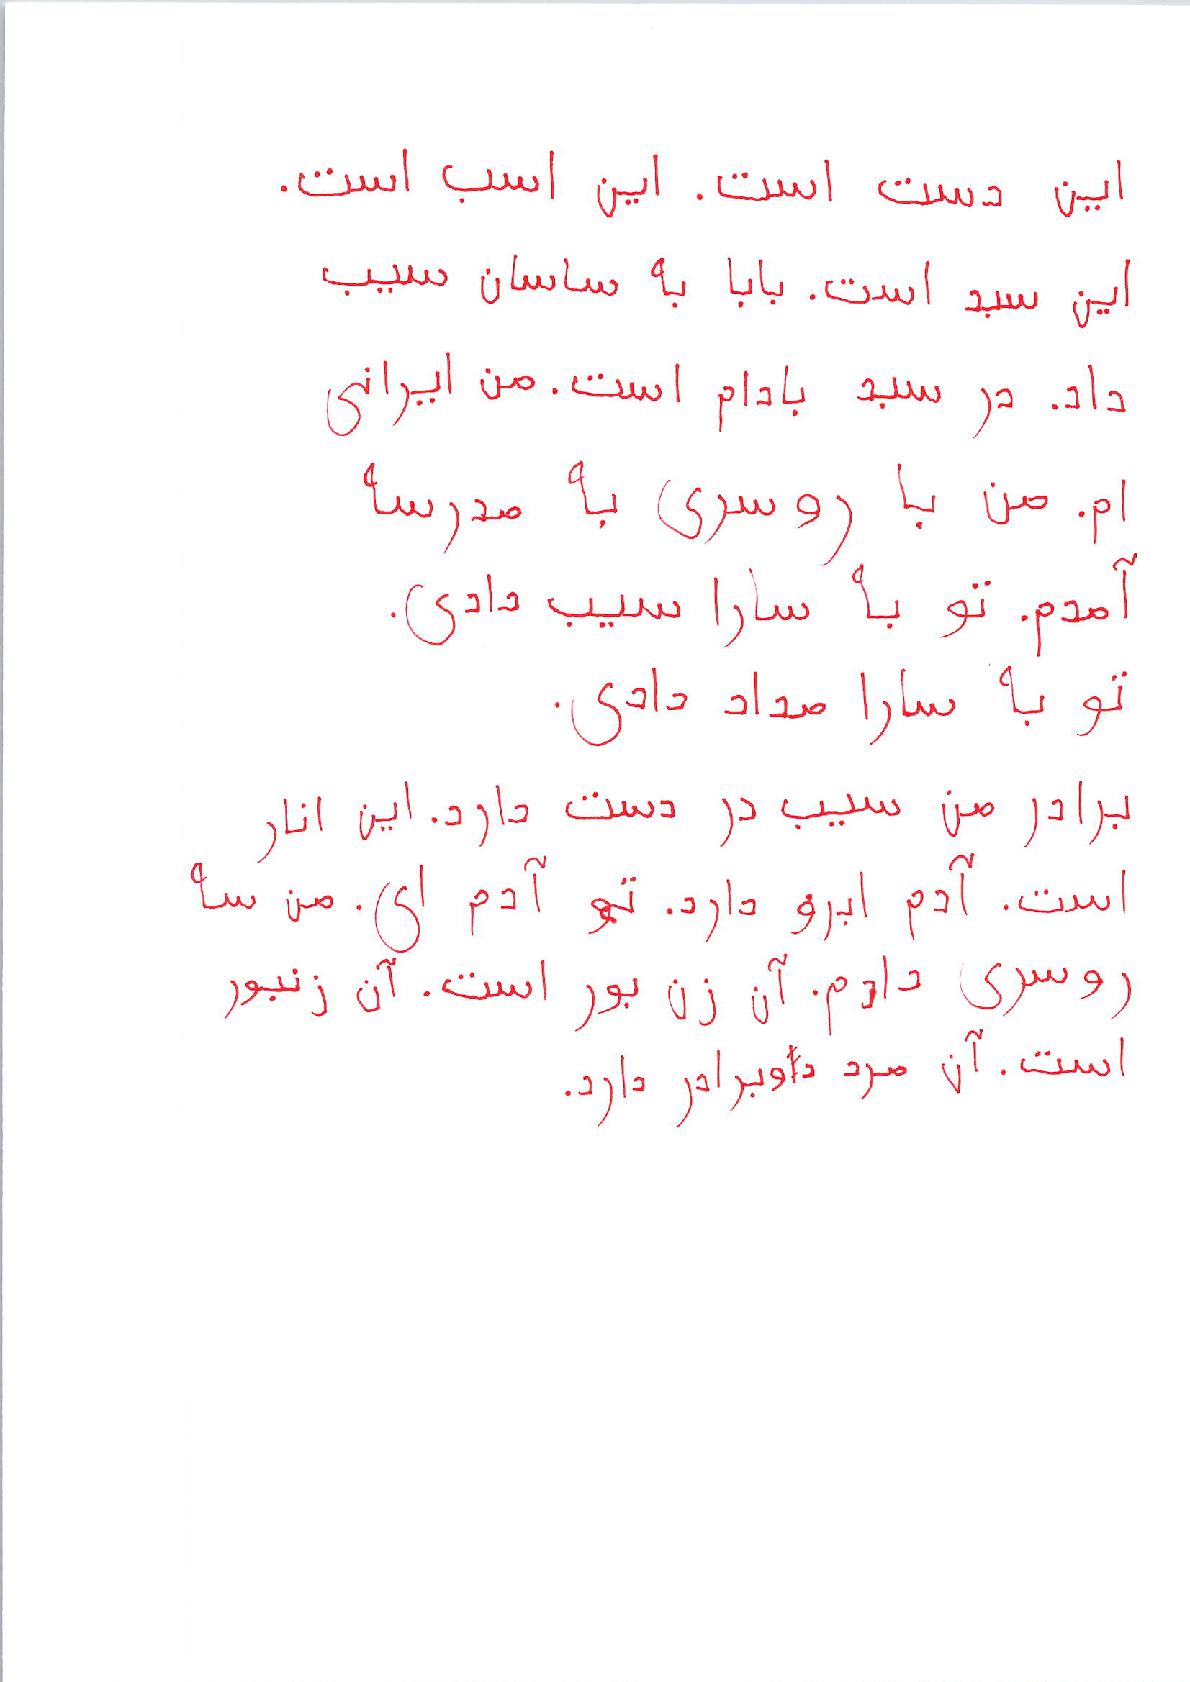 این دست است. این اسب است.
این سبد است. بابا به ساسان سیب
داد. در سبد بادام است. من ایرانی
ام. من با روسری به مدرسه
آمدم. تو به سارا سیب دادی.
تو به سارا مداد دادی.
برادر من سیب در دست دارد. این انار
است. آدم ابرو دارد. تو آدم ای. من سه
روسری دارم. آن زن بور است. آن زنبور
است. آن مرد برادر دارد.